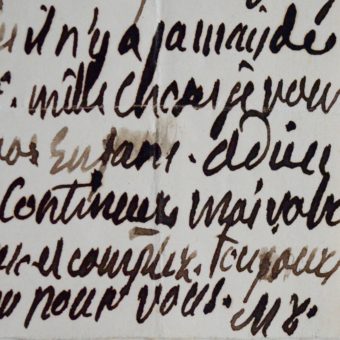 il n'y a jamais de
mille choses je vous
vos Enfans. adieu
Continuez moi votre
et comptez toujours
pour vous.